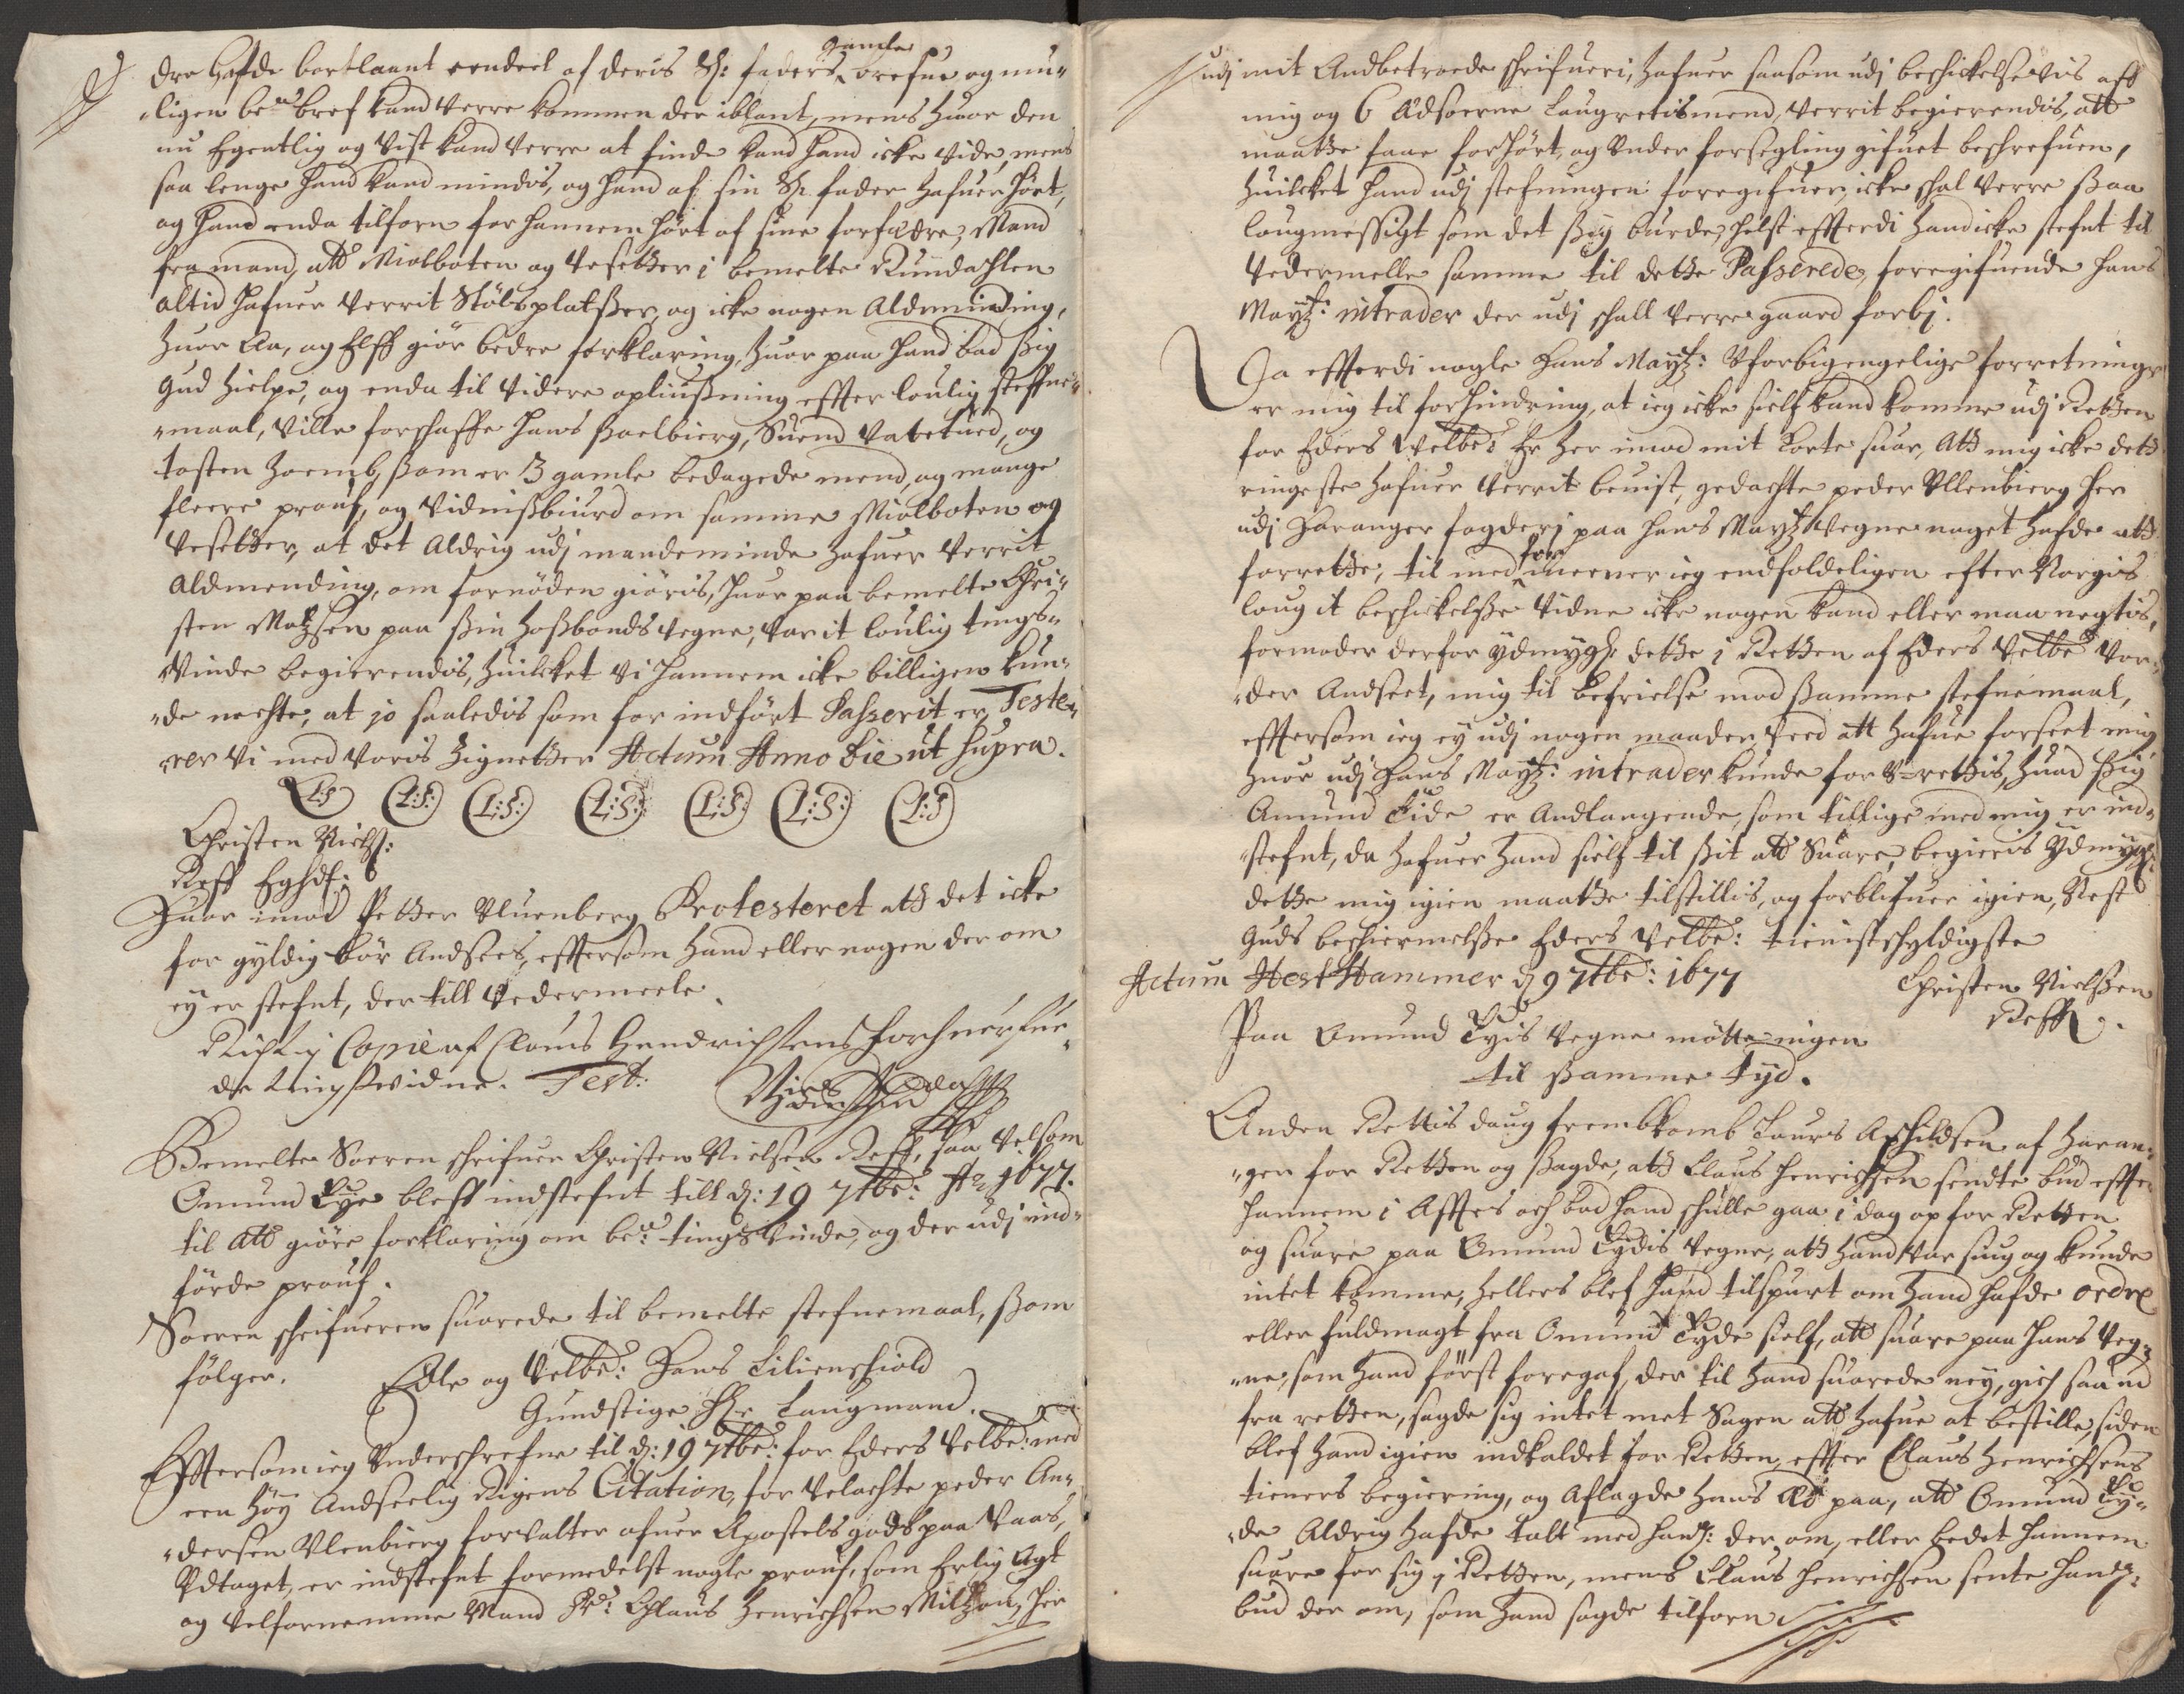 dre hafde bortlaant eendeel af deris Sl: faders gamle brefue og mu„
„ligen be:te bref kand verre kommen der iblant, mens huor den
nu Egentlig og vist kand verre at finde kand hand icke vide, mens
saa lenge hand kand mindis, og hand af sin Sl: fader hafuer hört,
og hand enda tilforn for hannem hört af sine forfædre, Mand
fra mand, att Miolboten og Vesetter i bemelte Rundachlen
altid hafuer verrit Stölsplatzer, og icke nogen Aldminding,
huor Aa, og Elff giör bedre forklaring, huor paa hand bad ßig
Gud hielpe, og enda til videre opliußning effter loulig steffne„
„maal, ville forschaffe Hans ßaelbierg, Suend Vatetued, og
tosten hoemb, ßom er 3 gamle bedagede mend, og mange
fleere prouf, og vidnißbiurd om samme Miolboten og
Vesetter, at det Aldrig udj mandeminde hafuer verrit
Aldmending, om fornöden giöris, huor paa bemelte Chri„
sten Matzsen paa ßin hoßbonds vegne, var it loulig tings„
Vinde begierendis, huilcket vi hannem icke billigen kun„
„de nechte, at jo saaledis som for indfört Passerit er, Teste„
„rer vi med voris Zignetter Actum Anno Die ut supra.
L:S L:S: L:S: L:S: L:S: L:S: L:S
Christen Niels:
Reff Eghd:
Huor imod Petter Vluenberg Protesteret att det icke
for gyldig bör Andsees, effterßom hand eller nogen der om
ey er stefnt, der till Vedermeele.
Richtig Copie af Claus Hendrichsens forhuerfue„
de tingsvidne. Test:
Bemelte Soeren schrifuer Christen Nielsen Reff, saa velsom
Omund Eye bleff indstefnt till d: 19 7tbr: Ao 1677.
til att giöre forklaring om be:te tings Vinde, og der udj ind„
förde prouf.
Soeren schrifueren suarede til bemelte stefnemaal, ßom
fölger. Edle og Velbr: Hans Lilienschiold
Gundstige Hr Laugmand.
Effttersom ieg Underschrefne til d: 19 7tbr: for Eders Velbr: med
een höy Andseelig Rigens Citation, for velachte peder An„
„dersen Vlenbierg forvalter ofuer Apostels gods paa Vaas,
Udtaget, er indstefnt formedelst nogle prouf, som Erlig Agt
og velfornemme Mand Sr: Claus Henrichsen Miltzou, her
udj mit Andbetroede schrifueri, hafuer saasom udj beschickelsevis aff
mig og 6 Ædsoerne Laugretismend, verrit begierendis, att
maatte faae forhört, og Under forsegling gifuet beschrefuen,
huilcket hand udj stefningen foregifuer, icke schal verre ßaa
lougmessigt som det ßig burde, helst effterdi hand icke stefnt til
Vedermelle samme til dette Passerede, foregifuende Hans
Maytz: intrader der udj schall verre gaaed forbj.
Da effterdi nogle Hans Maytz: Uforbigengelige forretninger
er mig til forhindring, at ieg icke sielf kand komme udj Retten
for Eders Velbr: Er her imod mit korte suar, Att mig icke dett
ringeste hafuer verrit beuist, gedachte peder Ullenbierg her
udj Haranger fogderj paa Hans Maytz vegne noget hafde att
forrette, til med for meener ieg endfoldeligen efter Norgis
loug it beschickelße vidne icke nogen kand eller maa negtis,
formoder derfor ydmygl: dette i Retten af Eders Velbr vor„
„der Andseet, mig til befrielse mod ßamme stefnemaal,
efftersom ieg ey udj nogen maader veed att hafue forseet mig
huor udj Hans Maytz: intrader kunde for U-rettis, huad ßig
Omund Eide er Andlangende, som tillige med mig er ind„
„stefnt, da hafuer hand sielf til ßit att Suare, begieris Ydmygl:
dette mig igien maatte tilstillis, og forblifuer igien, Nest
Guds beschiermelße Eders Velbr: tienistschyldigste
Actum Hesthammer d: 9 7tbr: 1677 Christen Nielßen
Reff.
Paa Omund Eyis vegne mötte ingen
til ßamme tyd.
Anden Rettis daug frembkomb Lours Aschildsen af Haran„
„ger for Retten og ßagde, att Claus Henrichsen sendte bud effter
hannem i Affttes och bad hand schulle gaa i dag op for Retten
og suare paa Omund Eydis vegne, att hand var siug og kunde
intet komme, hellers blef hand tilspurt om hand hafde ordre
eller fuldmagt fra Omund Eyde sielf, att suare paa hans veg„
„ne, som hand först foregaf, der til hand suarede ney, gich saa ud
fra retten, sagde sig intet met Sagen att hafue at bestille, siden
blef hand igien indkaldet for Retten, effter Claus Henrichsens
tieners begiering, og Aflagde hans Æd paa, att Omund Ey„
„de Aldrig hafde talt med han: der om, eller bedet hannem
suare for sig i Retten, mens Claus Henrichsen sente han:
bud der om, som hand sagde tilforn